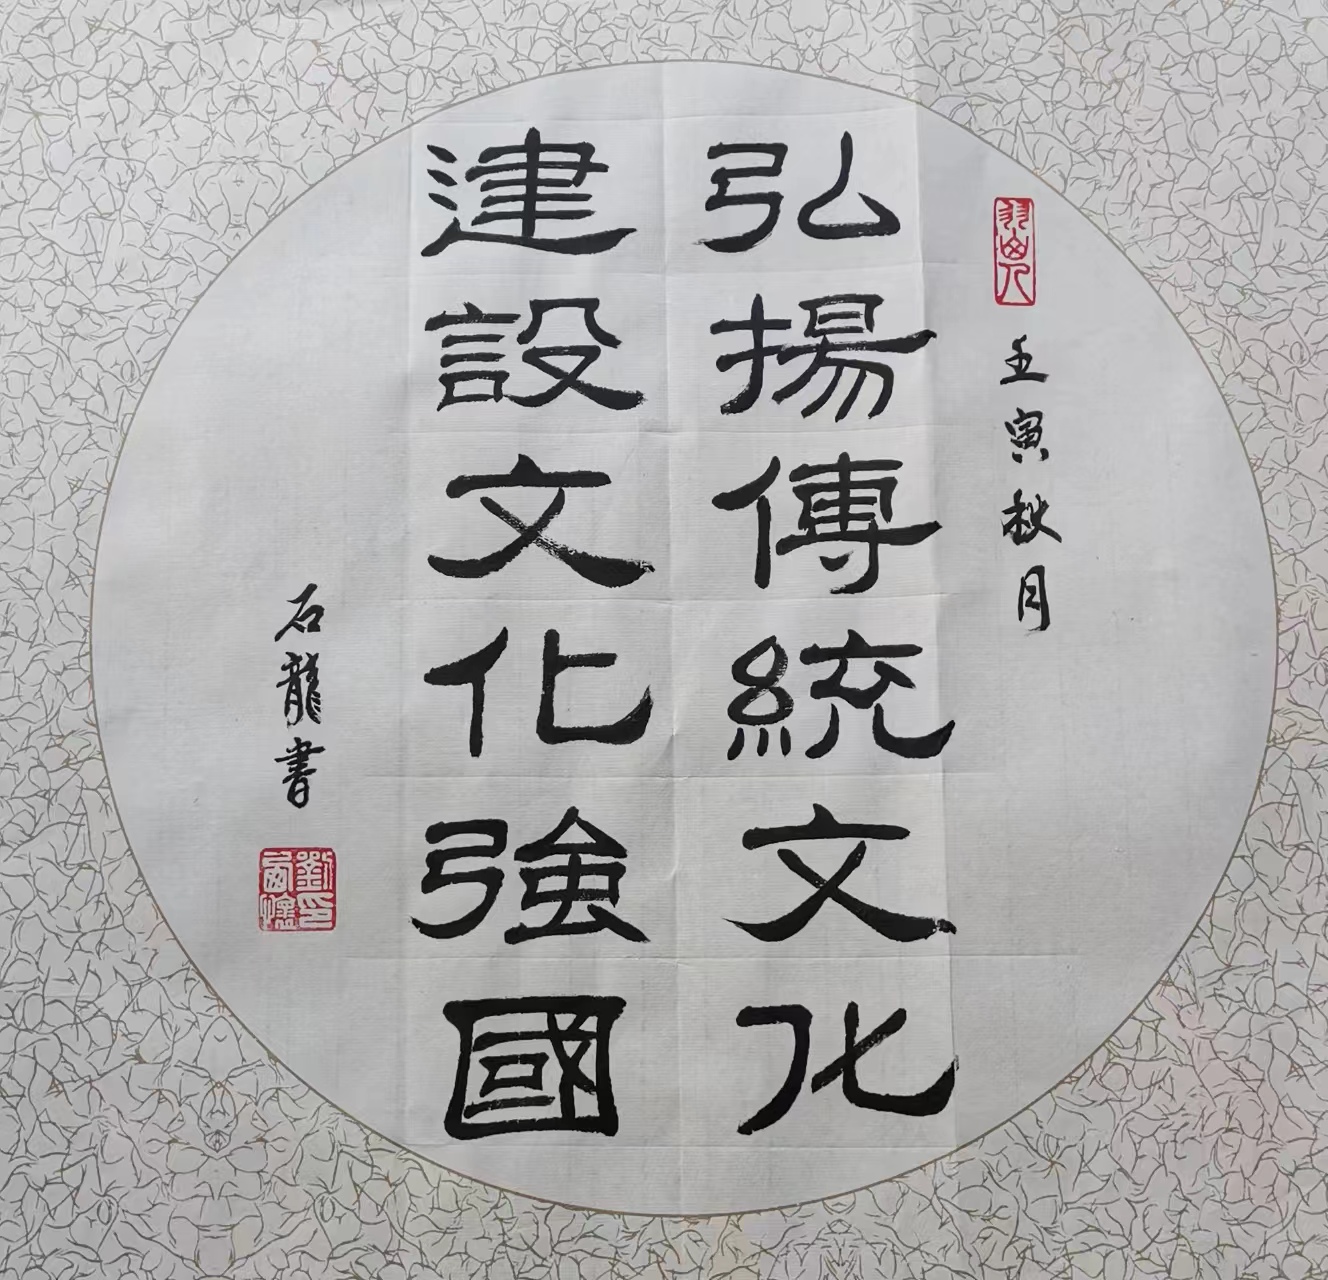 壬寅秋月
弘揚傳統文化
建設文化強國
石龍書